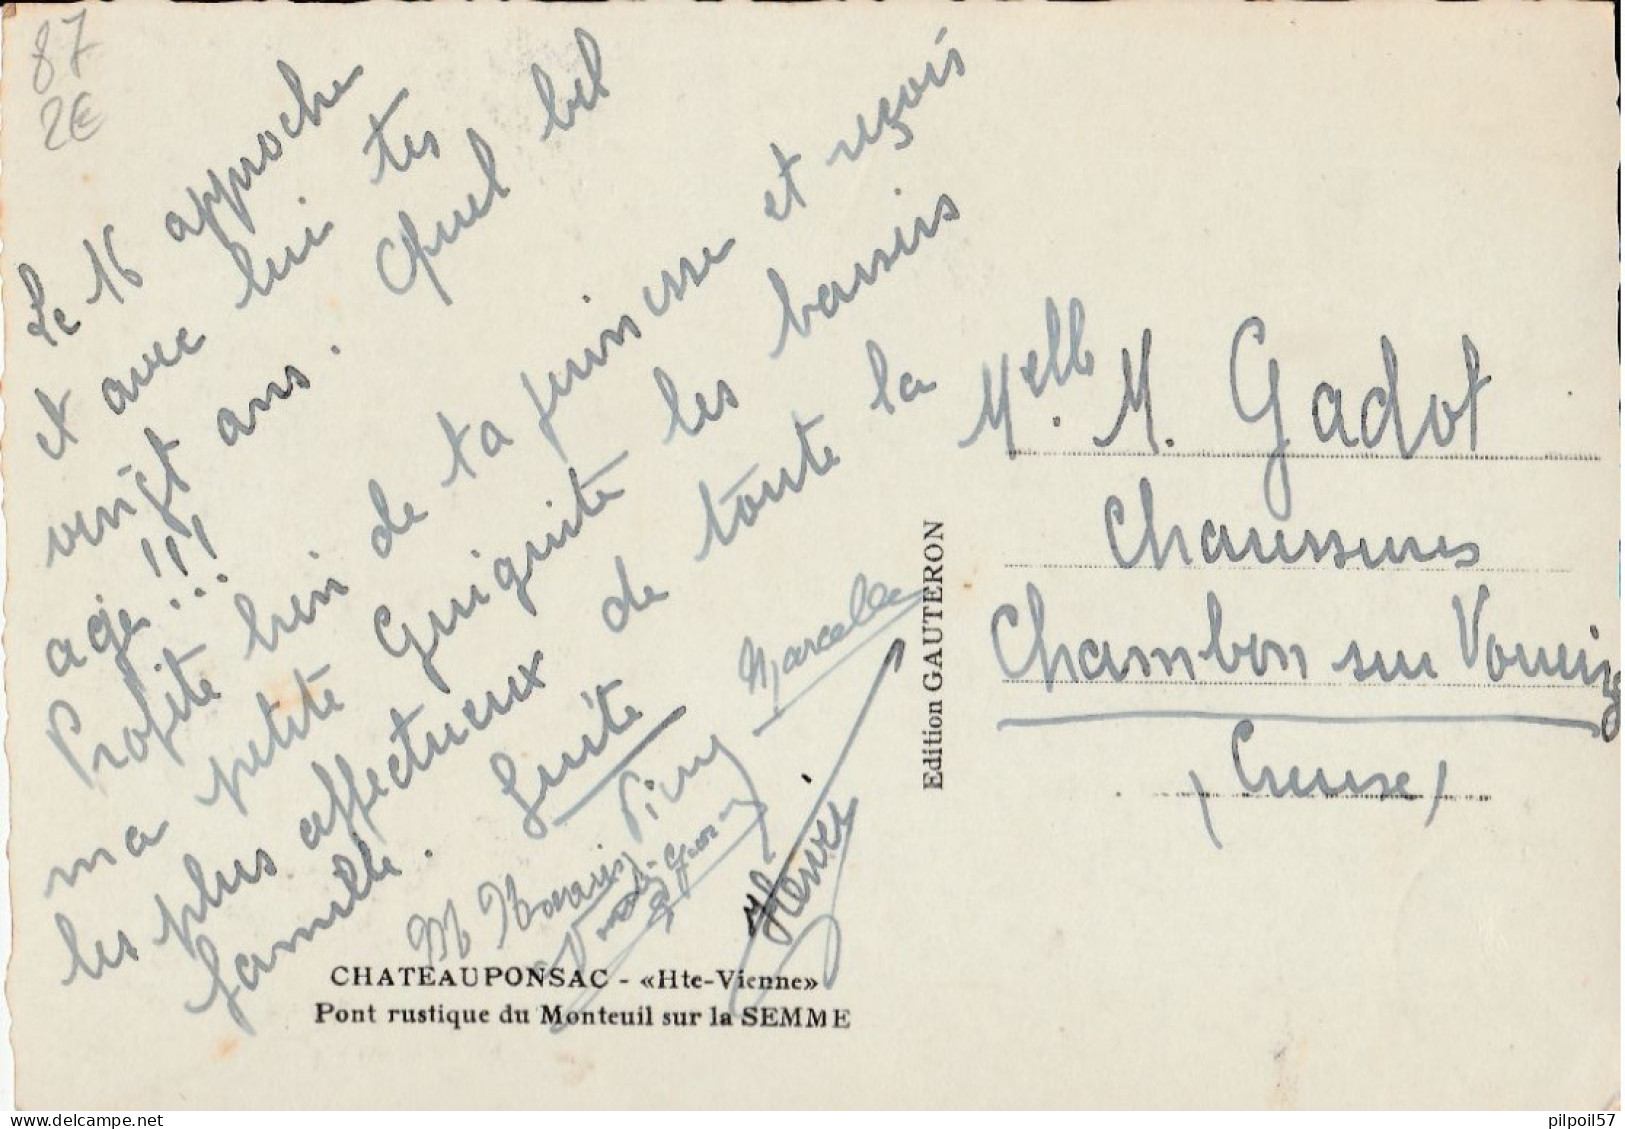 87
2€
Le 16 approche
et avec lui tes
vingt ans. Quel bel
age!!!
Profite bien de ta jeunesse et reçois
ma petite Guiguite les baisers
les plus affectueux de toute la
famille. Guite
Marcelle
Henri
Melle. M. Gadot
Chaussures
Chambon sur Voueize
(Creuse)
Edition GAUTERON
CHATEAUPONSAC - «Hte-Vienne»
Pont rustique du Monteuil sur la SEMME
delcampe.net
pilpoil57